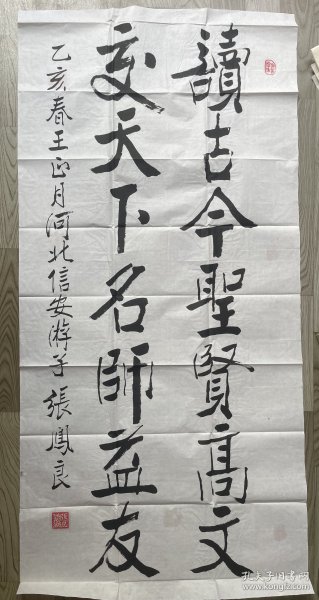 讀古今聖賢高文
交天下名師益友
乙亥春王正月河北信安游子張鳳良
孔夫子旧书网
www.kongfz.com